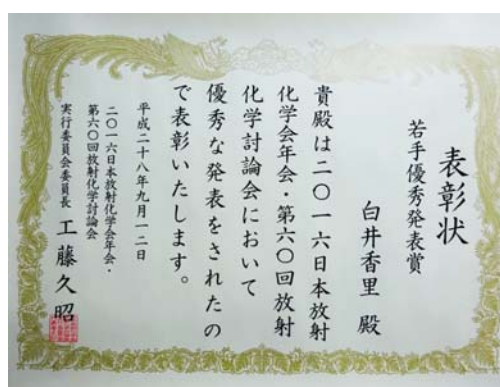 表彰状
若手優秀発表賞
白井香里 殿
貴殿は二〇一六日本放射
化学会年会・第六〇回放射
化学討論会において
優秀な発表をされたの
で表彰いたします。
平成二十八年九月一二日
二〇一六日本放射化学会年会・
第六〇回放射化学討論会
実行委員会委員長 工藤久昭